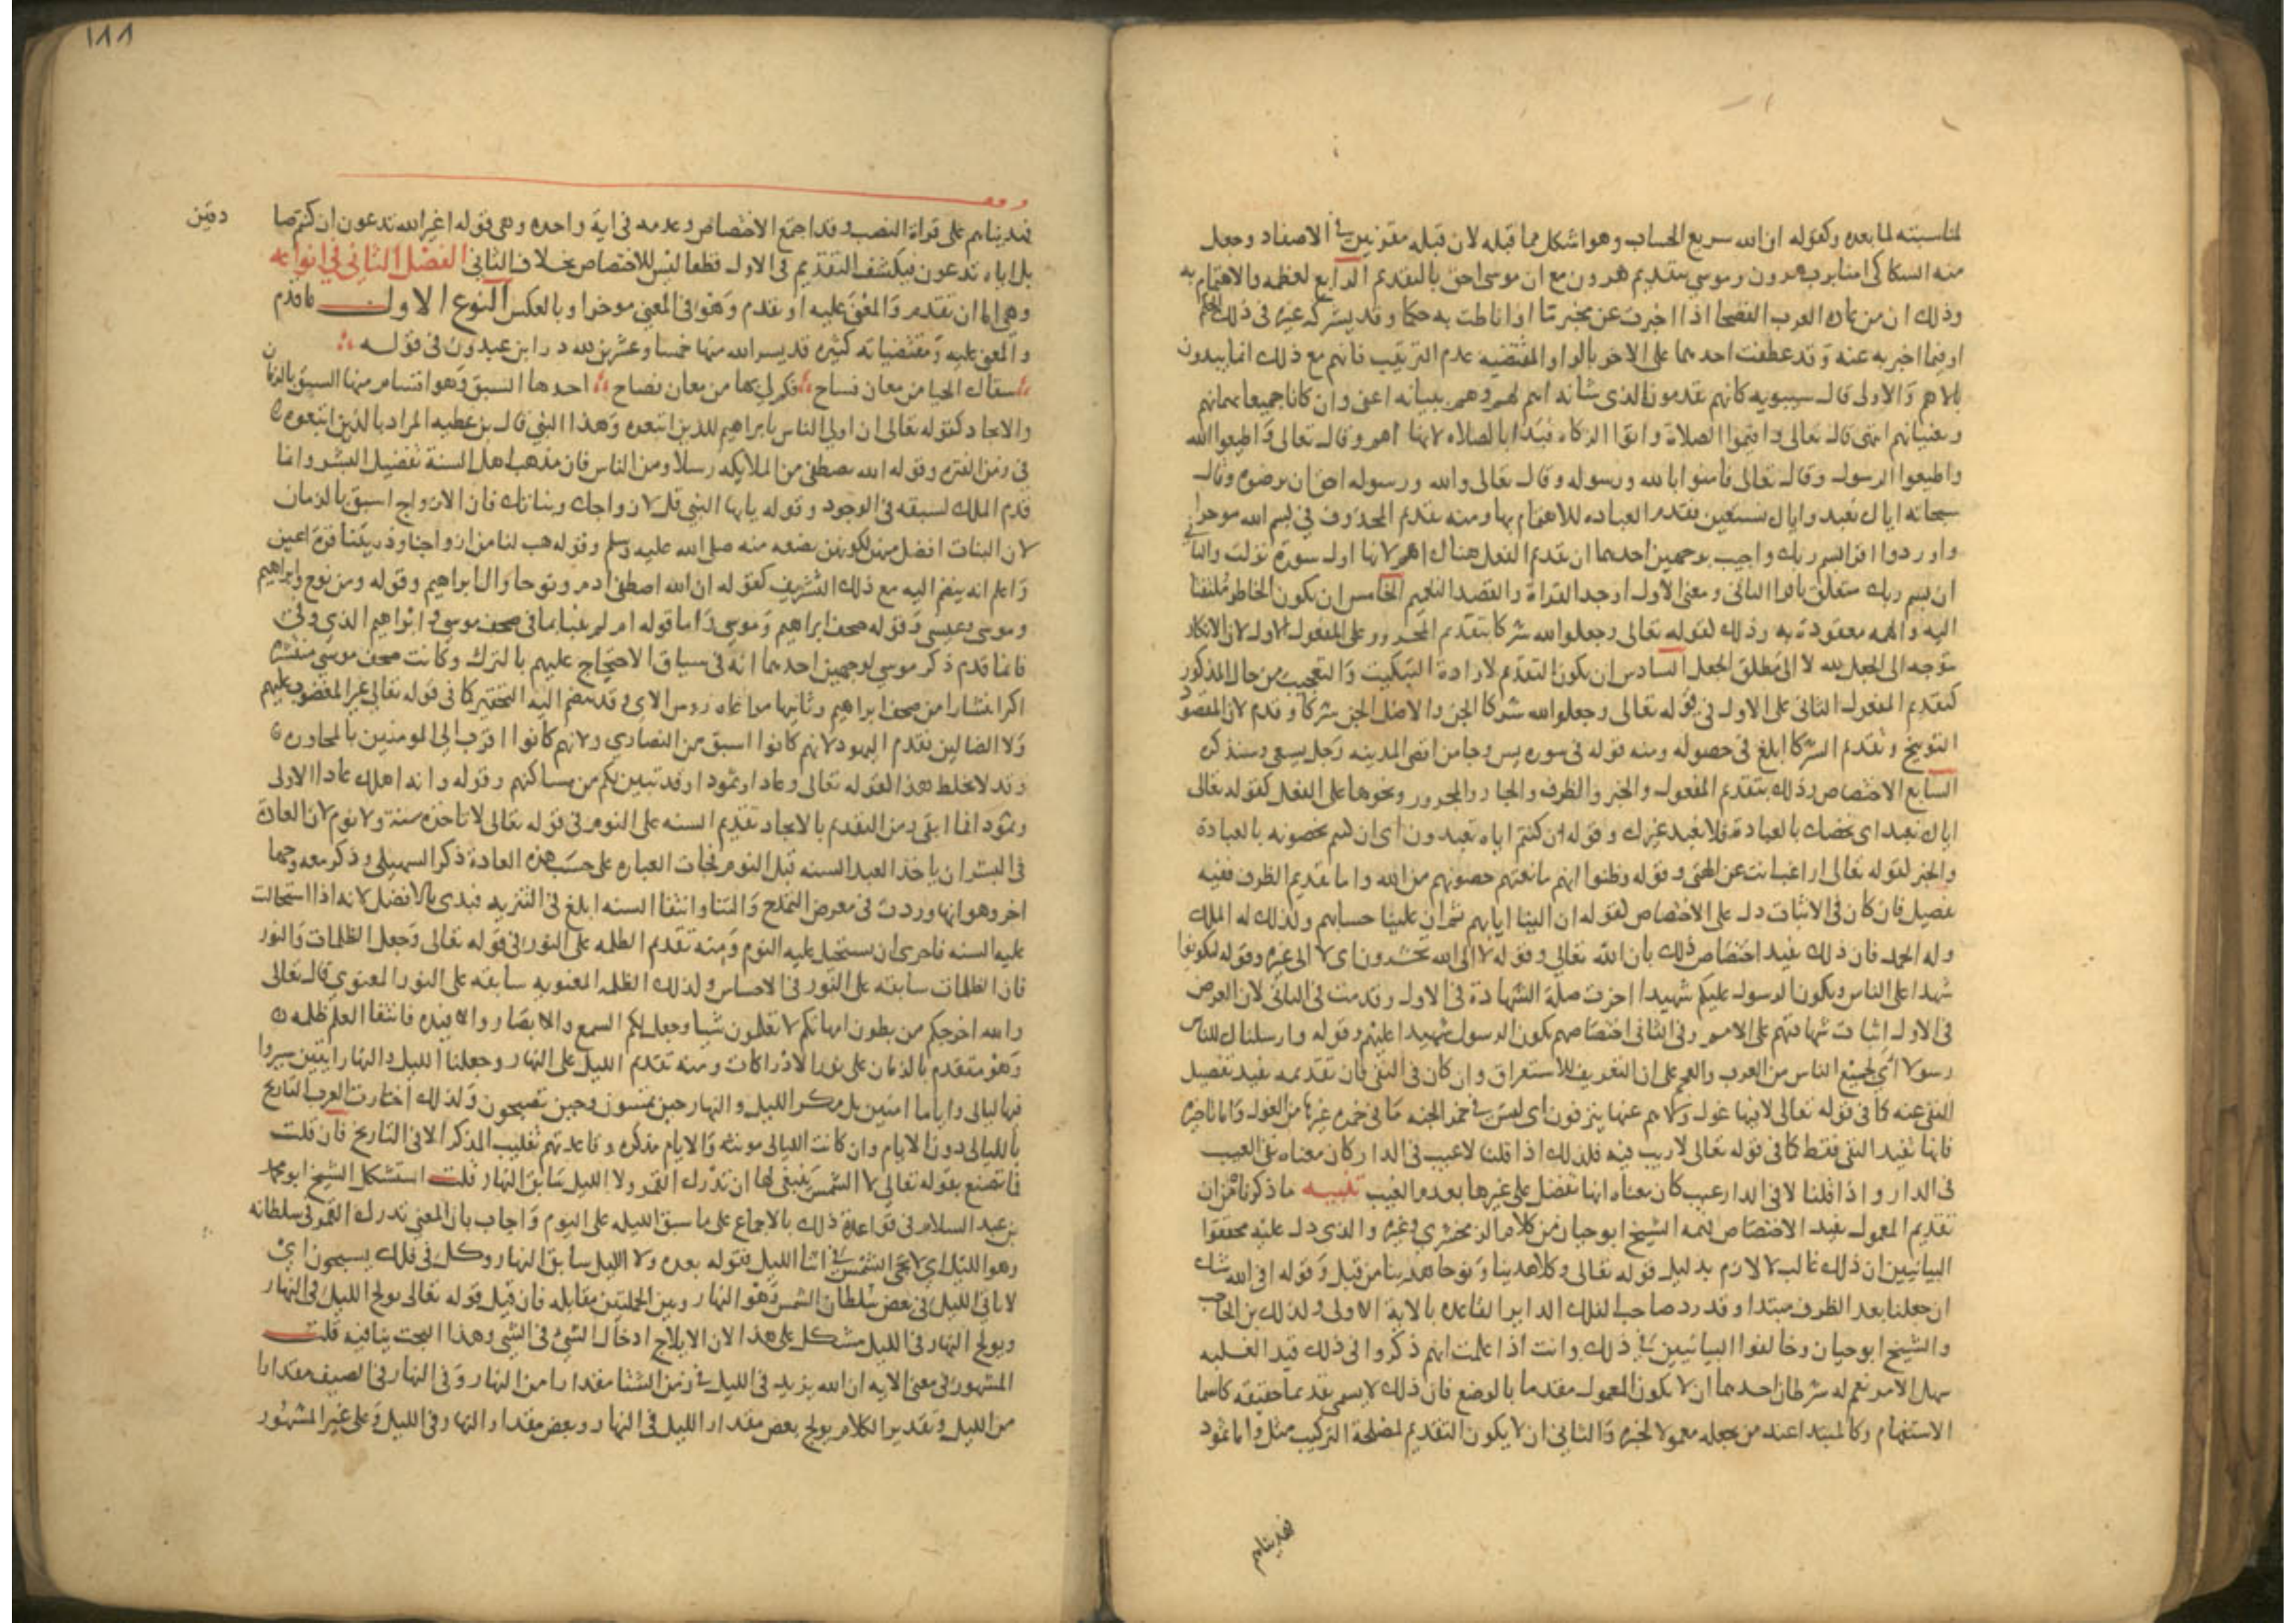 لمناسبته لما بعده وكقوله ان الله سريع الحساب وهو اشكل مما قبله لان قبله مقرنين في الاصفاد وجعل
منه السكاكى امنا برب هرون وموسى بتقديم هرون مع ان موسى احق بالتقديم الرابع لعظمه والاهتمام به
وذلك ان من عادة العرب الفصحا اذا اخبرت عن مخبر ما اذا ناطت به حكما وقد يشركه غيره فى ذلك الحكم
او فيما اخبر به عنه وقد عطفت احدهما على الاخر بالواو المقتضيه عدم الترتيب فانهم مع ذلك انما يبدون
بالاهم والاولى قال سيبويه كانهم يقدمون الذى شانه اهم لهم وهم ببيانه اعنى وان كانا جميعا يهمانهم
ويعنيانهم انتهى قال تعالى واقيموا الصلاة واتوا الزكاه فبدا بالصلاه لانها اهم وقال تعالى واطيعوا الله
واطيعوا الرسول وقال تعالى فامنوا بالله ورسوله وقال تعالى والله ورسوله احق ان يرضوه وقال
سبحانه اياك نعبد واياك نستعين فقدم العباده للاهتمام بها ومنه تقديم المحذوف في بسم الله موخرا
واوردوا اقرا باسم ربك واجيب بوجهين احدهما ان تقديم الفعل هناك اهم لانها اول سورة نزلت والثانى
ان بسم ربك متعلق باقرا الثانى ومعنى الاول اوجد القراة والقصد التعميم الخامس ان يكون الخاطر ملتفتا
اليه والهمه معقودة به وذلك لقوله تعالى وجعلوا لله شركا بتقديم المجرور على المفعول الاول لان الانكار
متوجه الى الجعل لله لا الى مطلق الجعل السادس ان يكون التقديم لارادة التبكيت والتعجيب من حال المذكور
كتقديم المفعول الثانى على الاول في قوله تعالى وجعلوا لله شركا الجن والاصل الجن شركا وقدم لان المقصود
التوبيخ وتقديم الشركا ابلغ فى حصوله ومنه قوله فى سوره يس وجا من اقصى المدينه رجل يسعى وسنذكره
السابع الاختصاص وذلك بتقديم المفعول والخبر والظرف والجار والمجرور ونحوها على الفعل كقوله تعالى
اياك نعبد اى نخصك بالعبادة فلا نعبد غيرك وقوله ان كنتم اياه تعبدون اى ان كنتم تخصونه بالعبادة
والخبر لقوله تعالى اراغب انت عن الهتى وقوله وظنوا انهم مانعتهم حصونهم من الله واما تقديم الظرف ففيه
تفصيل فان كان فى الاثبات دل على الاختصاص لقوله ان الينا ايابهم ثم ان علينا حسابهم وكذلك له الملك
وله الحمد فان ذلك يفيد اختصاص ذلك بان الله تعالى وقوله لا الى الله تحشرون اى لا الى غيره وقوله لتكونوا
شهدا على الناس ويكون الرسول عليكم شهيدا اخرت صلة الشهادة فى الاول وقدمت فى الثانى لان الغرض
فى الاول اثبات شهادتهم على الامم وفى الثانى اختصاصهم بكون الرسول شهيدا عليهم وقوله وارسلناك للناس
رسولا اى لجميع الناس من العرب والعجم على ان التعريف للاستغراق وان كان فى النفى فان تقديمه يفيد تفضيل
المنفى عنه كما فى قوله تعالى لا فيها غول ولا هم عنها ينزفون اى ليس فى خمر الجنه ما فى خمره غيرها من الغول واما تاخيره
فانها تفيد النفى فقط كما فى قوله تعالى لا ريب فيه فلذلك اذا قلنا لا عيب فى الدار كان معناه نفى العيب
فى الدار واذا قلنا لا فى الدار عيب كان معناه انها تفضل على غيرها بعدم العيب تنبيه ما ذكرناه من ان
تقديم المعمول يفيد الاختصاص فهمه الشيخ ابو حيان من كلام الزمخشري وغيره والذى دل عليه محققوا
البيانيين ان ذلك غالب لا لازم بدليل قوله تعالى وكلا هدينا ونوحا هدينا من قبل وقوله افى الله شك
ان جعلنا بعد الظرف مبتدا وقد رد صاحب الفلك الداير القاعده بالاية الاولى وكذلك بن الحاجب
والشيخ ابو حيان وخالفوا البيانيين فى ذلك وانت اذا علمت انهم ذكروا فى ذلك قيد الغلبه
سهل الامر نعم له شرطان احدهما ان لا يكون المعمول مقدما بالوضع فان ذلك لا يسمى تقديما حقيقه كاسما
الاستفهام وكالمبتدا عند من يجعله معمولا لخبره والثانى ان لا يكون التقديم لمصلحة التركيب مثل واما ثمود
فهديناهم
١٨٨
فهديناهم على قراة النصب وقد اجتمع الاختصاص وعدمه فى اية واحده وهى قوله اغير الله تدعون ان كنتم صا
دقين
بل اياه تدعون فيكشف التقديم فى الاول قطعا ليس للاختصاص بخلاف الثانى الفصل الثانى فى انواعه
وهى اما ان تقدم والمعنى عليه او تقدم وهو فى المعنى موخر او بالعكس النوع الاول ما قدم
والمعنى عليه ومقتضياته كثيره قد يسر الله منها خمسا وعشرين لله در ابن عبدون فى قوله
سقاك الحيا من معان فساح فكم لى بها من معان فصاح احدها السبق وهو اقسام منها السبق بالزمان
والايجاد كقوله تعالى ان اولى الناس بابراهيم للذين اتبعوه وهذا النبى قال بن عطيه المراد بالذين اتبعوه
فى زمن الفترة وقوله الله يصطفى من الملايكه رسلا ومن الناس فان مذهب اهل السنة تفضيل البشر وانما
قدم الملك لسبقه فى الوجود وقوله يايها النبى قل لازواجك وبناتك فان الازواج اسبق بالزمان
لان البنات افضل منهن لكونهن بضعه منه صلى الله عليه وسلم وقوله هب لنا من ازواجنا وذريتنا قرة اعين
واعلم انه ينضم اليه مع ذلك التشريف كقوله ان الله اصطفى ادم ونوحا وال ابراهيم وقوله ومن نوح وابراهيم
وموسى وعيسى وقوله صحف ابراهيم وموسى واما قوله ام لم ينبا بما فى صحف موسى وابراهيم الذى وفى
فانما قدم ذكر موسى لوجهين احدهما انه فى سياق الاحتجاج عليهم بالترك وكانت صحف موسى منتشره
اكثر انتشارا من صحف ابراهيم وثانيها مراعاه روس الاى وقد ينضم اليه التحقير كما فى قوله تعالى غير المغضوب عليهم
ولا الضالين تقدم اليهود لانهم كانوا اسبق من النصارى ولانهم كانوا اقرب الى المومنين بالمجاوره
وقد لا يخلط هذا لقوله تعالى وعادا وثمودا وقد تبين لكم من مساكنهم وقوله وانه اهلك عادا الاولى
وثمود فما ابقى ومن التقديم بالايجاد تقديم السنه على النوم فى قوله تعالى لا تاخذه سنة ولا نوم لان العادة
فى البشر ان ياخذ العبد السنه قبل النوم فجات العباره على حسب هذه العادة ذكر السهيلى وذكر معه وجها
اخر وهو انها وردت فى معرض التمدح والثنا وانتفا السنه ابلغ فى التنزيه فبدى بالافضل لانه اذا استحالت
عليه السنه فاحرى ان يستحيل عليه النوم ومنه تقديم الظلمه على النور فى قوله تعالى وجعل الظلمات والنور
فان الظلمات سابقه على النور فى الاحساس وكذلك الظلمه المعنويه سابقه على النور المعنوى قال تعالى
والله اخرجكم من بطون امهاتكم لا تعلمون شيا وجعل لكم السمع والابصار والافيده فانتفا العلم ظلمه
وهو متقدم بالزمان على نور الادراكات ومنه تقديم الليل على النهار وجعلنا الليل والنهار ايتين سيروا
فيها ليالى واياما امنين بل مكر الليل والنهار حين تمسون وحين تصبحون ولذلك اختارت العرب التاريخ
بالليالى دون الايام وان كانت الليالى مونثه والايام مذكره وقاعدتهم تغليب المذكر الا فى التاريخ فان قلت
فما تصنع بقوله تعالى لا الشمس ينبغى لها ان تدرك القمر ولا الليل سابق النهار قلت استشكل الشيخ ابو محمد
بن عبد السلام فى قواعده ذلك بالاجماع على ما سبق الليله على اليوم واجاب بان المعنى تدرك القمر فى سلطانه
وهو الليل اى لا تجى الشمس فى اثنا الليل فقوله بعده ولا الليل سابق النهار وكل فى فلك يسبحون اى
لا ياتى الليل فى بعض سلطان الشمس وهو النهار وبين الجملتين مقابله فان قيل قوله تعالى يولج الليل فى النهار
ويولج النهار فى الليل مشكل على هذا لان الايلاج ادخال الشى فى الشى وهذا البحث ينافيه قلت
المشهور فى معنى الايه ان الله يزيد فى الليل فى زمن الشتا مقدارا من النهار وفى النهار فى الصيف مقدارا
من الليل وتقدير الكلام يولج بعض مقدار الليل فى النهار وبعض مقدار النهار فى الليل وعلى غير المشهور